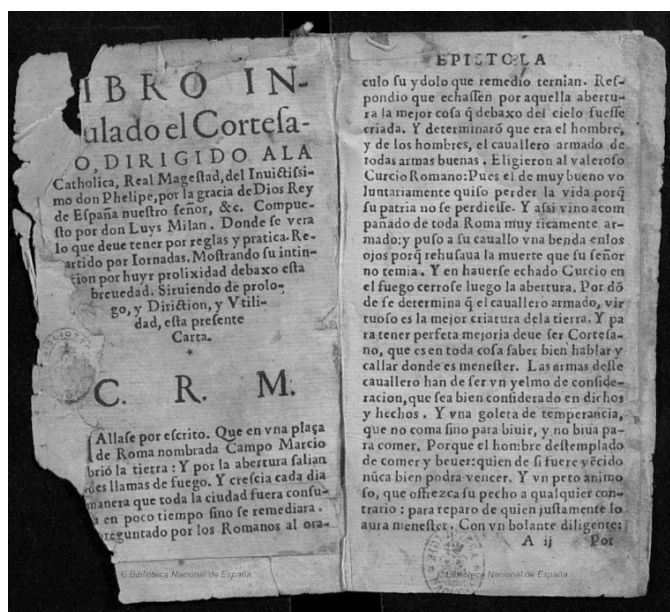 IBRO IN-
ulado el Cortesa-
O, DIRIGIDO A LA
Catholica, Real Magestad, del Inuictissi-
mo don Phelipe, por la gracia de Dios Rey
de España nuestro señor, &c. Compue-
sto por don Luys Milan. Donde se vera
lo que deue tener por reglas y pratica. Re-
artido por Iornadas. Mostrando su intin-
cion por huyr prolixidad debaxo esta
breuedad. Siruiendo de prolo-
go, y Diriction, y Vtili-
dad, esta presente
Carta.
*
C. R. M.
Allase por escrito. Que en vna plaça
de Roma nombrada Campo Marcio
brió la tierra: Y por la abertura salian
des llamas de fuego. Y crescia cada dia
manera que toda la ciudad fuera consu-
a en poco tiempo sino se remediara.
reguntado por los Romanos al ora-
© Biblioteca Nacional de España
EPISTOLA
culo su ydolo que remedio ternian. Res-
pondio que echassen por aquella abertu-
ra la mejor cosa q̃ debaxo del cielo fuesse
criada. Y determinarõ que era el hombre,
y de los hombres, el cauallero armado de
todas armas buenas. Eligieron al valeroso
Curcio Romano: Pues el de muy bueno vo
luntariamente quiso perder la vida porq̃
su patria no se perdiesse. Y assi vino acom
pañado de toda Roma muy ricamente ar-
mado: y puso a su cauallo vna benda enlos
ojos porq̃ rehusaua la muerte que su señor
no temia. Y en hauerse echado Curcio en
el fuego cerrose luego la abertura. Por dõ
de se determina q̃ el cauallero armado, vir
tuoso es la mejor criatura dela tierra. Y pa
ra tener perfeta mejoria deue ser Cortesa-
no, que es en toda cosa saber bien hablar y
callar donde es menester. Las armas deste
cauallero han de ser vn yelmo de conside-
racion, que sea bien considerado en dichos
y hechos. Y vna goleta de temperancia,
que no coma sino para biuir, y no biua pa-
ra comer. Porque el hombre destemplado
de comer y beuer: quien de si fuere vẽcido
nũca bien podra vencer. Y vn peto animo
so, que offrezca su pecho a qualquier con-
trario: para reparo de quien justamente lo
aura menester. Con vn bolante diligente:
A ij Por
© Biblioteca Nacional de España